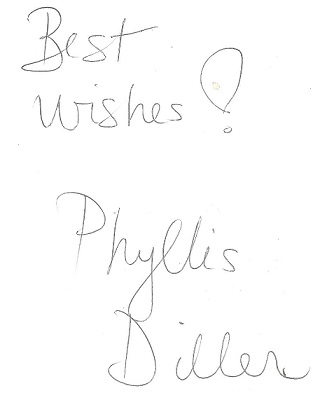 Best
Wishes!
Phyllis
Diller